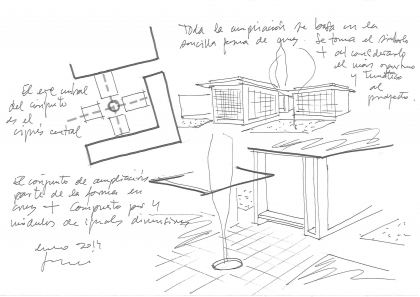 Toda la ampliación se basa en la
sencilla forma de cruz. Se toma el símbolo
+ al considerarlo
el más oportuno
y temático
al
proyecto.
El eje cural
del conjunto
es el
ciprés central
El conjunto de ampliación
parte de la forma en
cruz + compuesto por 4
módulos de iguales dimensiones
enero 2014